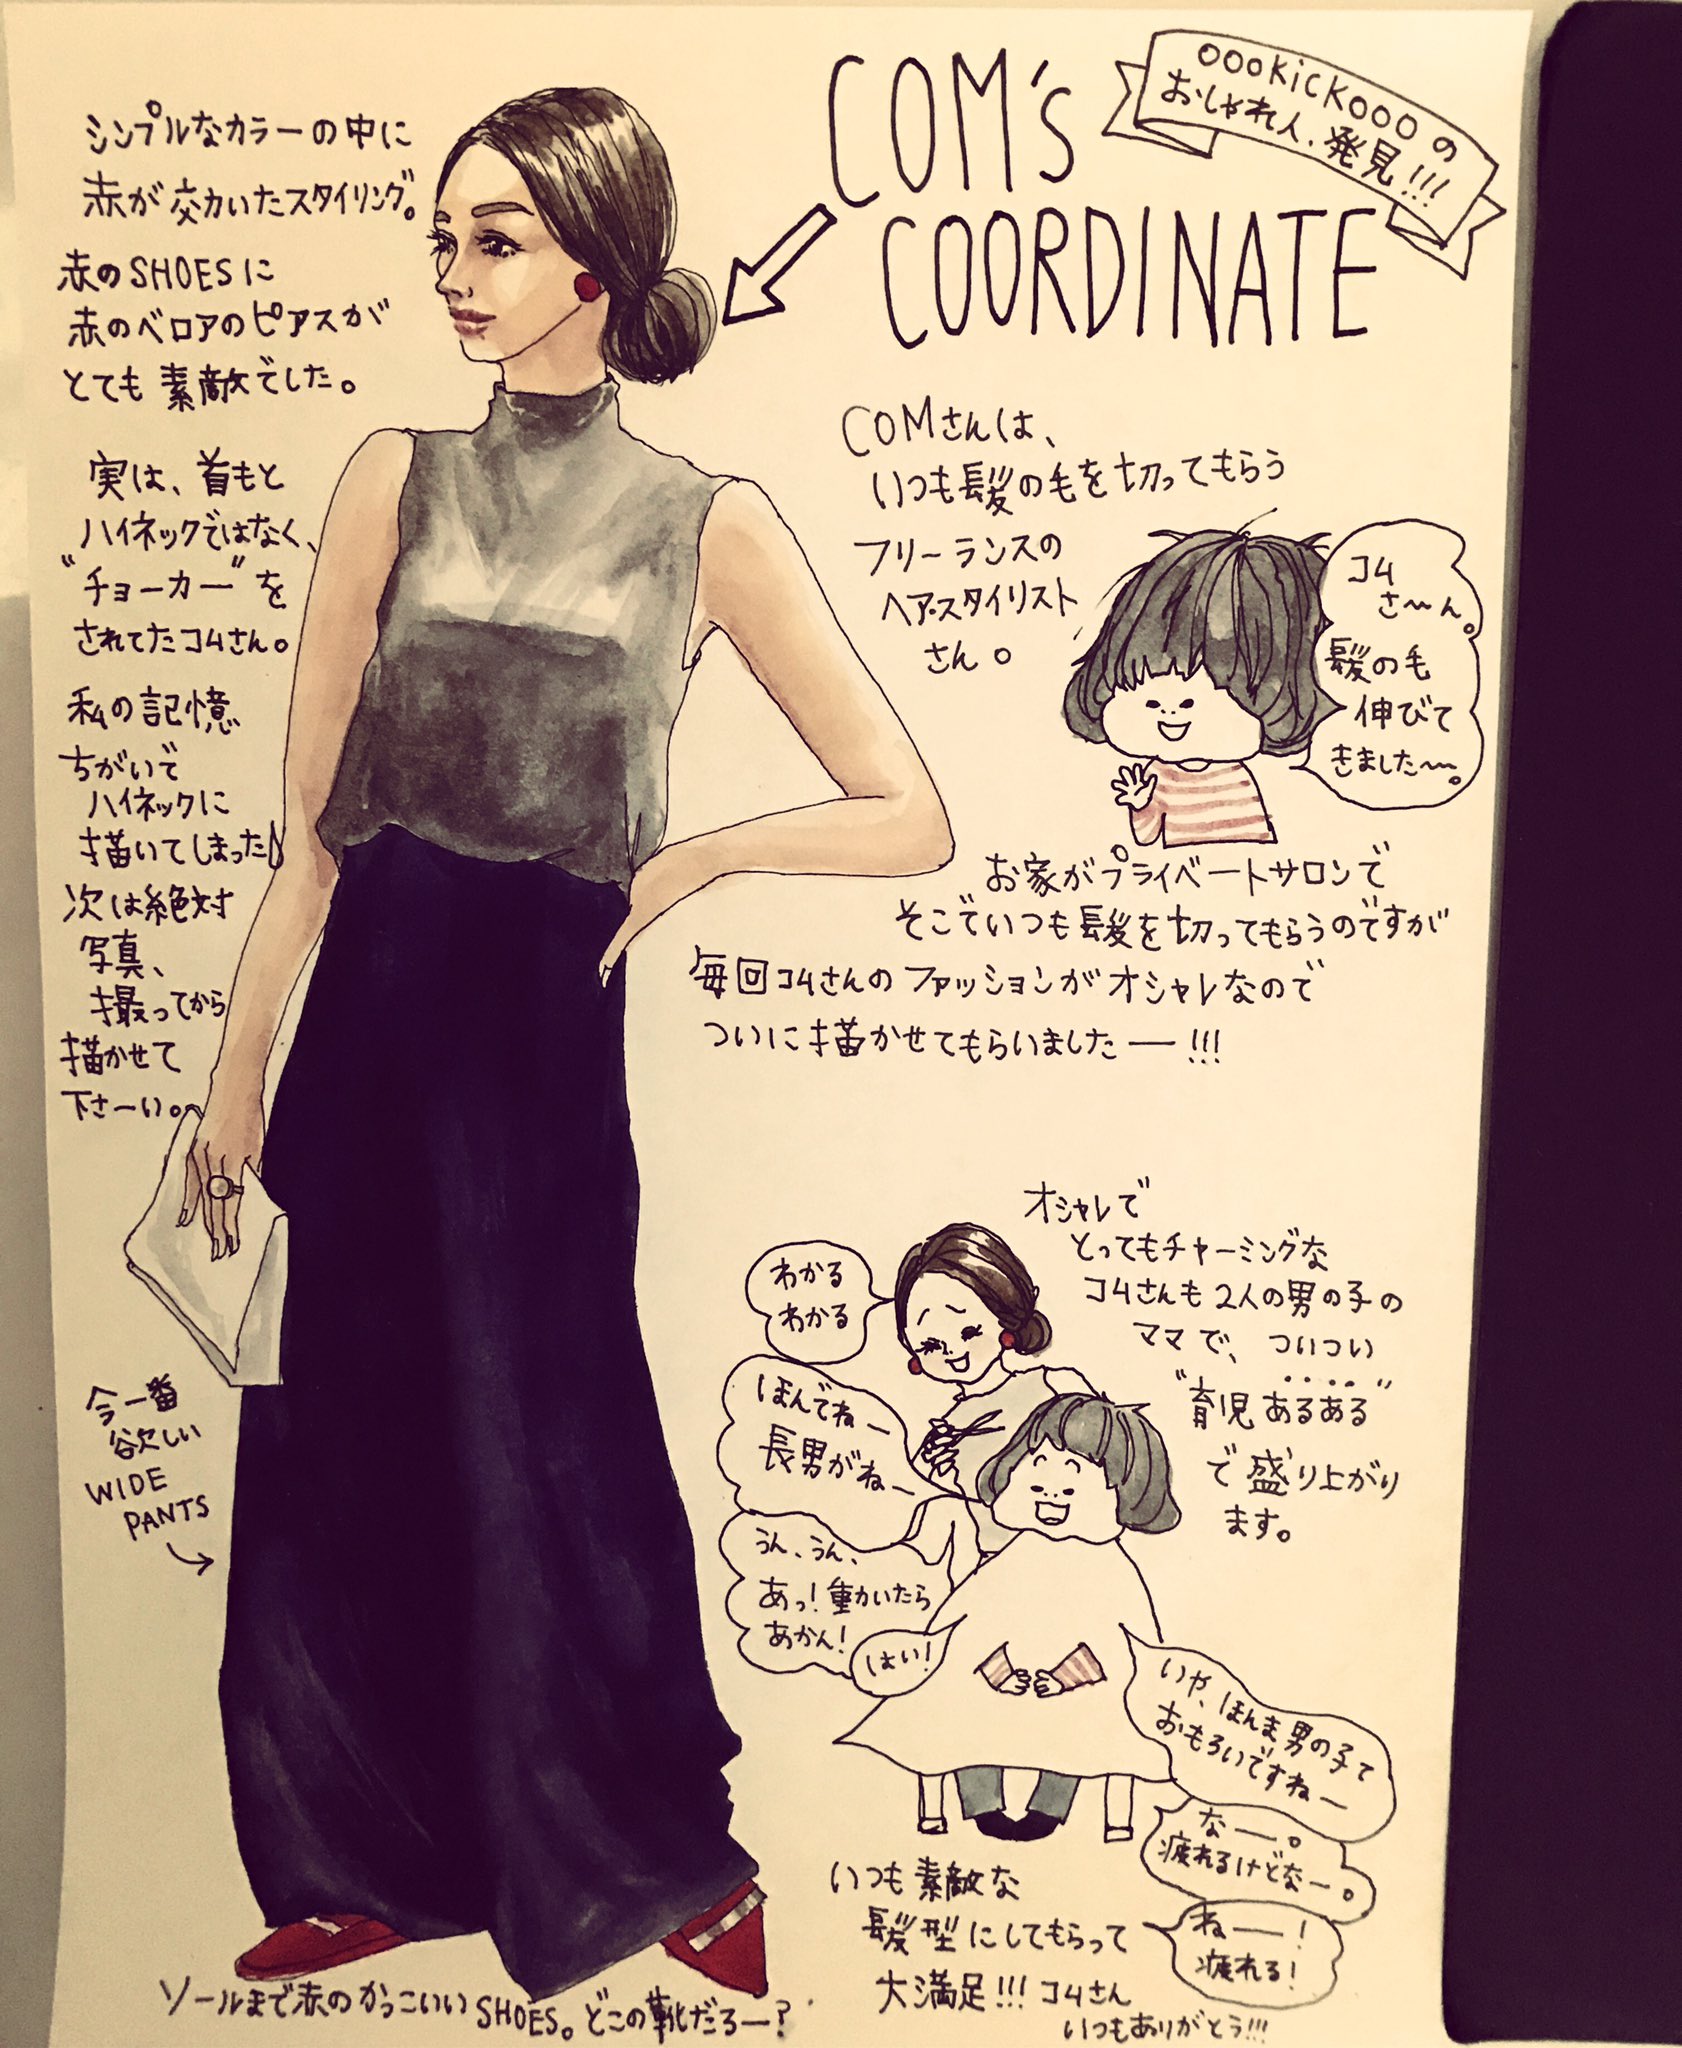 oookickoooの
おしゃれ人、発見!!!
COM's
COORDINATE
シンプルなカラーの中に
赤が効いたスタイリング。
赤のSHOESに
赤のベロアのピアスが
とても素敵でした。
実は、首もと
ハイネックではなく、
"チョーカー"を
されてたコムさん。
私の記憶
ちがいで
ハイネックに
描いてしまった
次は絶対
写真、
撮ってから
描かせて
下さーい。
今一番
欲しい
WIDE
PANTS
ソールまで赤のかっこいいSHOES。どこの靴だろー?
COMさんは、
いつも髪の毛を切ってもらう
フリーランスの
ヘアスタイリスト
さん。
コム
さ〜ん。
髪の毛
伸びて
きました〜。
お家がプライベートサロンで
そこでいつも髪を切ってもらうのですが
毎回コムさんのファッションがオシャレなので
ついに描かせてもらいましたー!!!
オシャレで
とってもチャーミングな
コムさんも2人の男の子の
ママで、ついつい
"育児あるある"
で盛り上がり
ます。
わかる
わかる
ほんでねー
長男がねー
うん、うん、
あっ!動いたら
あかん!
はい!
いや、ほんま男の子て
おもろいですねー
なー。
疲れるけどなー。
ねー!
疲れる!
いつも素敵な
髪型にしてもらって
大満足!!!コムさん
いつもありがとう!!!